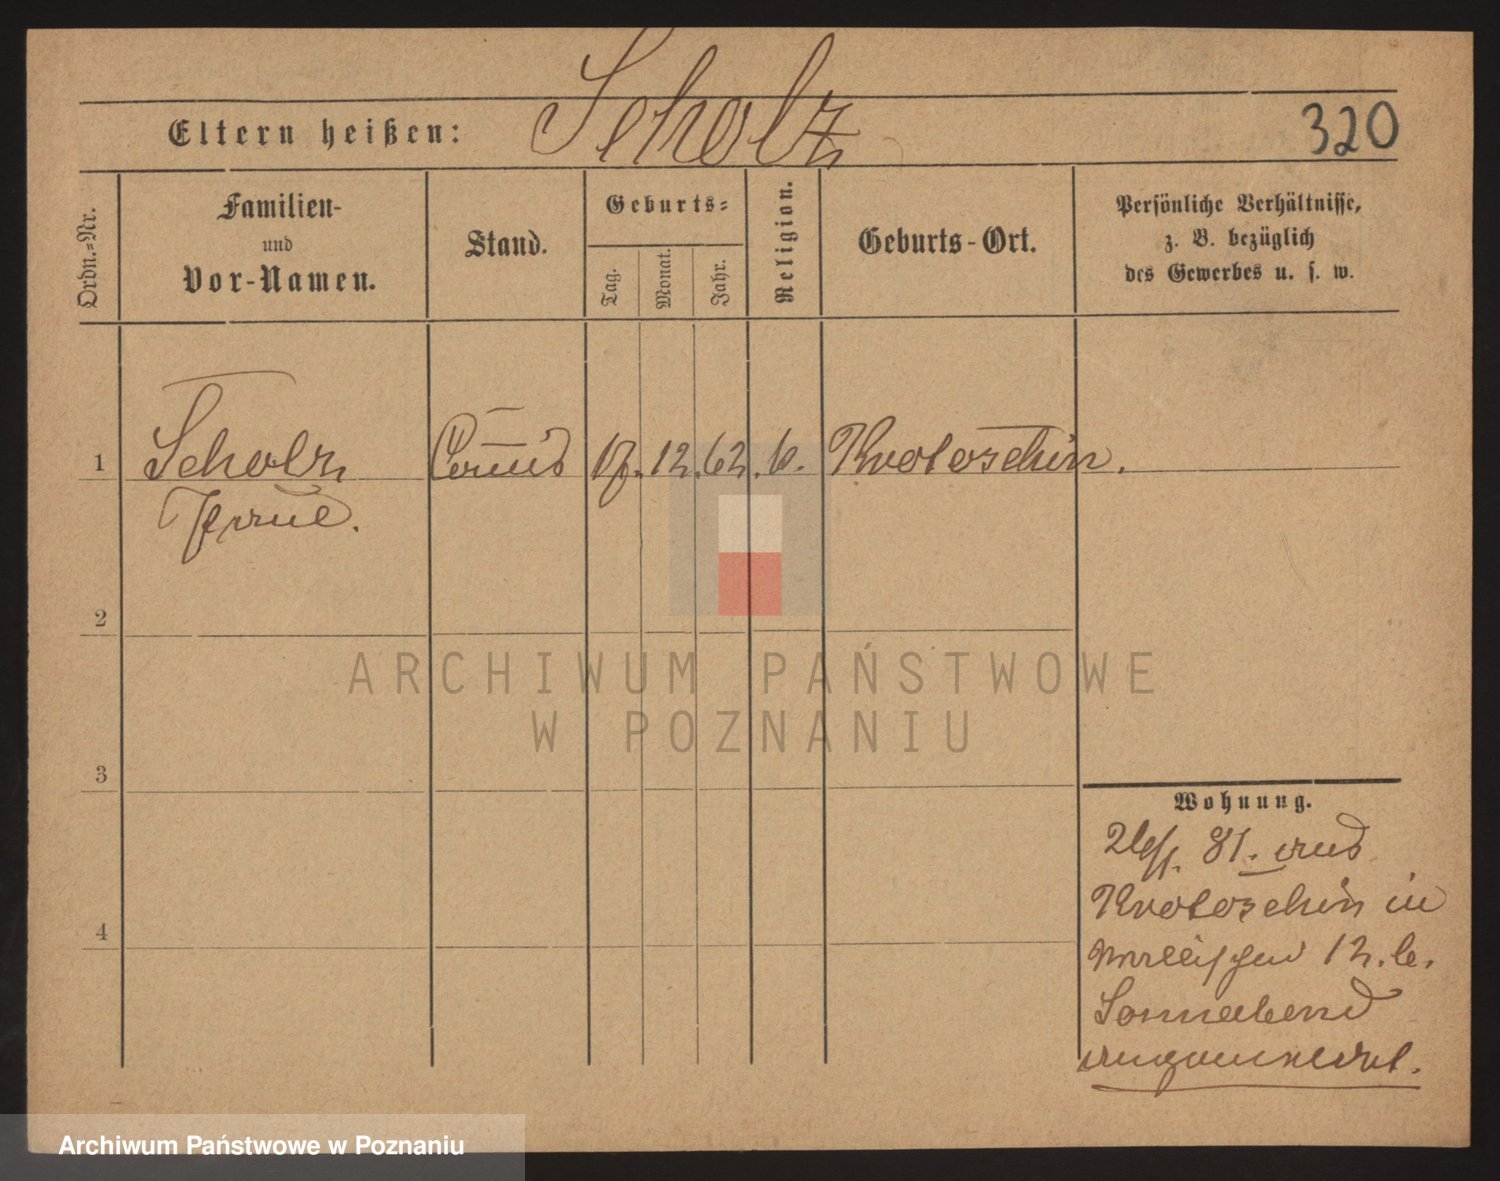 Scholz
Eltern heißen:
320
Ordn.-Nr.
Familien-
und
Vor-Namen.
Stand.
Geburts-
Tag.
Monat.
Jahr.
Religion.
Geburts-Ort.
Persönliche Verhältnisse,
z. B. bezüglich
des Gewerbes u. s. w.
1
Scholz
Paul.
Comis
17. 12. 62.
Krotoschin.
2
3
4
Wohnung.
81. aus
Krotoschin in
12. b.
Sonnabend
angemeldet.
ARCHIWUM PAŃSTWOWE
W POZNANIU
Archiwum Państwowe w Poznaniu